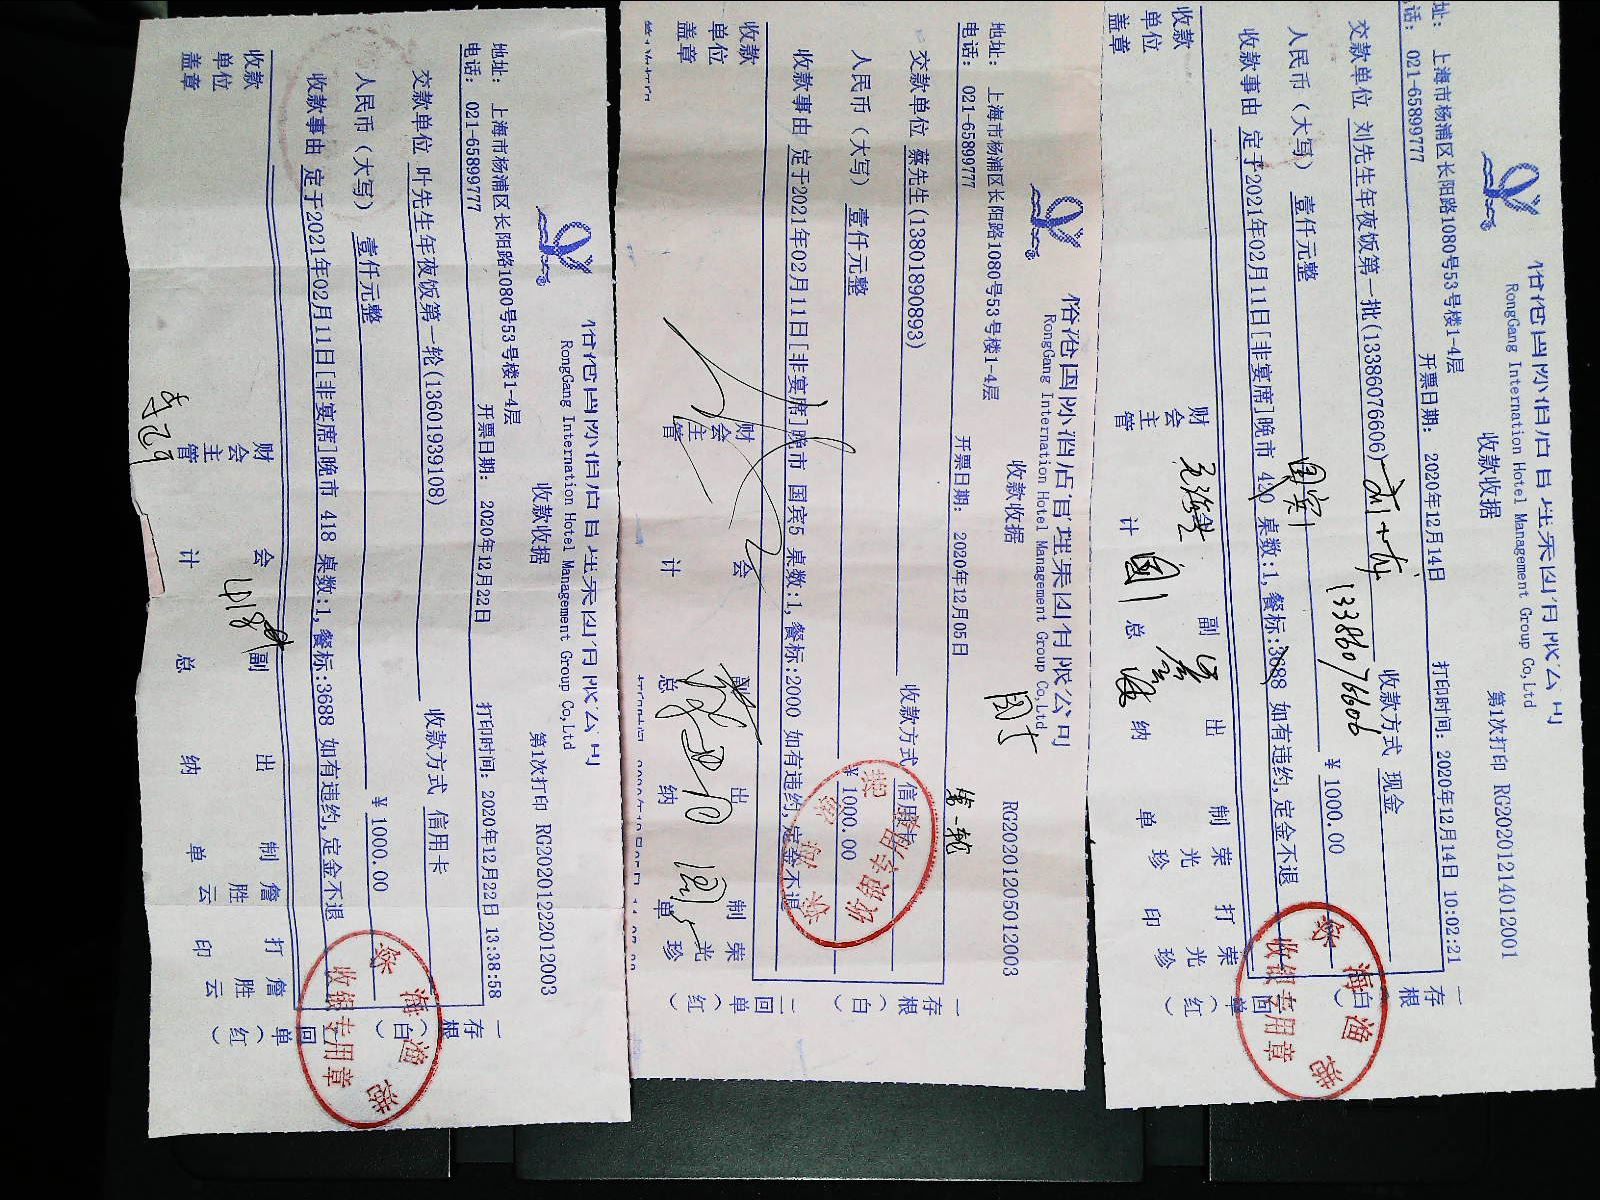 RongGang International Hotel Management Group Co,Ltd
收款收据
第1次打印 RG20201222012003
地址： 上海市杨浦区长阳路1080号53号楼1-4层
电话： 021-65899777
开票日期： 2020年12月22日
打印时间：2020年12月22日 13:38:58
交款单位 叶先生年夜饭第一轮(13601939108)
收款方式 信用卡
人民币（大写） 壹仟元整
￥ 1000.00
收款事由 定于2021年02月11日[非宴席]晚市 418 桌数:1,餐标:3688 如有违约,定金不退
收款单位盖章
财会主管
会计
副总
出纳
制单 詹胜云
打印 詹胜云
一存根（白）
二回单（红）
418
港海渔
收银专用章
RongGang International Hotel Management Group Co,Ltd
收款收据
RG20201205012003
地址： 上海市杨浦区长阳路1080号53号楼1-4层
电话： 021-65899777
开票日期： 2020年12月05日
第一轮
交款单位 蔡先生(13801890893)
收款方式 信用卡
人民币（大写） 壹仟元整
￥ 1000.00
收款事由 定于2021年02月11日[非宴席]晚市 国宾5 桌数:1,餐标:2000 如有违约,定金不退
收款单位盖章
财会主管
会计
副总
出纳
制单 荣光珍
一存根（白）
二回单（红）
收银专用章
RongGang International Hotel Management Group Co,Ltd
收款收据
第1次打印 RG20201214012001
址： 上海市杨浦区长阳路1080号53号楼1-4层
话： 021-65899777
开票日期： 2020年12月14日
打印时间：2020年12月14日 10:02:21
交款单位 刘先生年夜饭第一批(13386076606)
13386076606
收款方式 现金
人民币（大写） 壹仟元整
国宾1
￥ 1000.00
收款事由 定于2021年02月11日[非宴席]晚市 420 桌数:1,餐标:3688 如有违约,定金不退
收款单位盖章
财会主管
计
副总
出纳
制单 荣光珍
打印 荣光珍
一存根（白）
回单（红）
港渔海
收银专用章